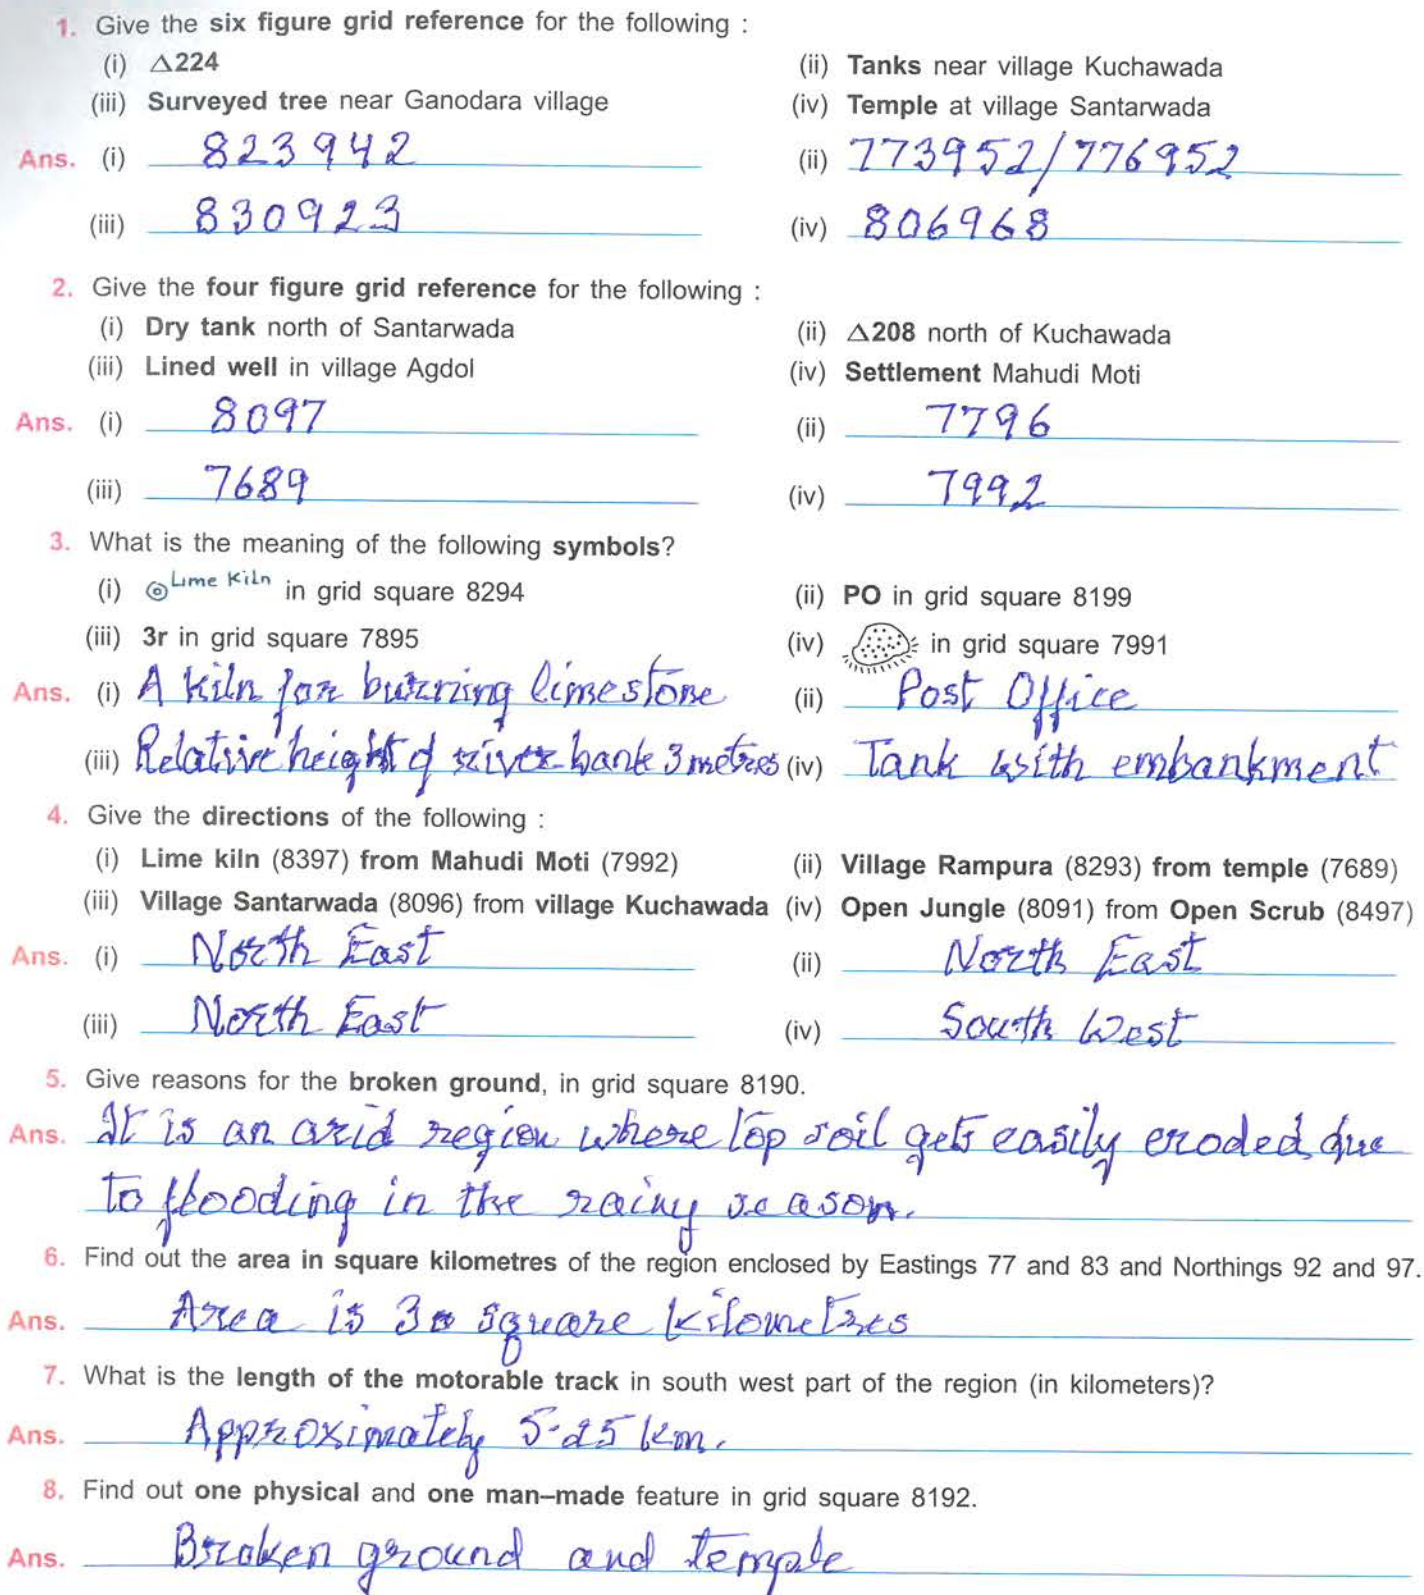 1. Give the six figure grid reference for the following :
(i) △224 (ii) Tanks near village Kuchawada
(iii) Surveyed tree near Ganodara village (iv) Temple at village Santarwada
Ans. (i) 823942 (ii) 773952/776952
(iii) 830923 (iv) 806968
2. Give the four figure grid reference for the following :
(i) Dry tank north of Santarwada (ii) △208 north of Kuchawada
(iii) Lined well in village Agdol (iv) Settlement Mahudi Moti
Ans. (i) 8097 (ii) 7796
(iii) 7689 (iv) 7992
3. What is the meaning of the following symbols?
(i) Lime Kiln in grid square 8294 (ii) PO in grid square 8199
(iii) 3r in grid square 7895 (iv) in grid square 7991
Ans. (i) A kiln for burning limestone (ii) Post Office
(iii) Relative height of river bank 3 metres (iv) Tank with embankment
4. Give the directions of the following :
(i) Lime kiln (8397) from Mahudi Moti (7992) (ii) Village Rampura (8293) from temple (7689)
(iii) Village Santarwada (8096) from village Kuchawada (iv) Open Jungle (8091) from Open Scrub (8497)
Ans. (i) North East (ii) North East
(iii) North East (iv) South West
5. Give reasons for the broken ground, in grid square 8190.
Ans. It is an arid region where top soil gets easily eroded due
to flooding in the rainy season.
6. Find out the area in square kilometres of the region enclosed by Eastings 77 and 83 and Northings 92 and 97.
Ans. Area is 30 square kilometres
7. What is the length of the motorable track in south west part of the region (in kilometers)?
Ans. Approximately 5.25 km.
8. Find out one physical and one man–made feature in grid square 8192.
Ans. Broken ground and temple